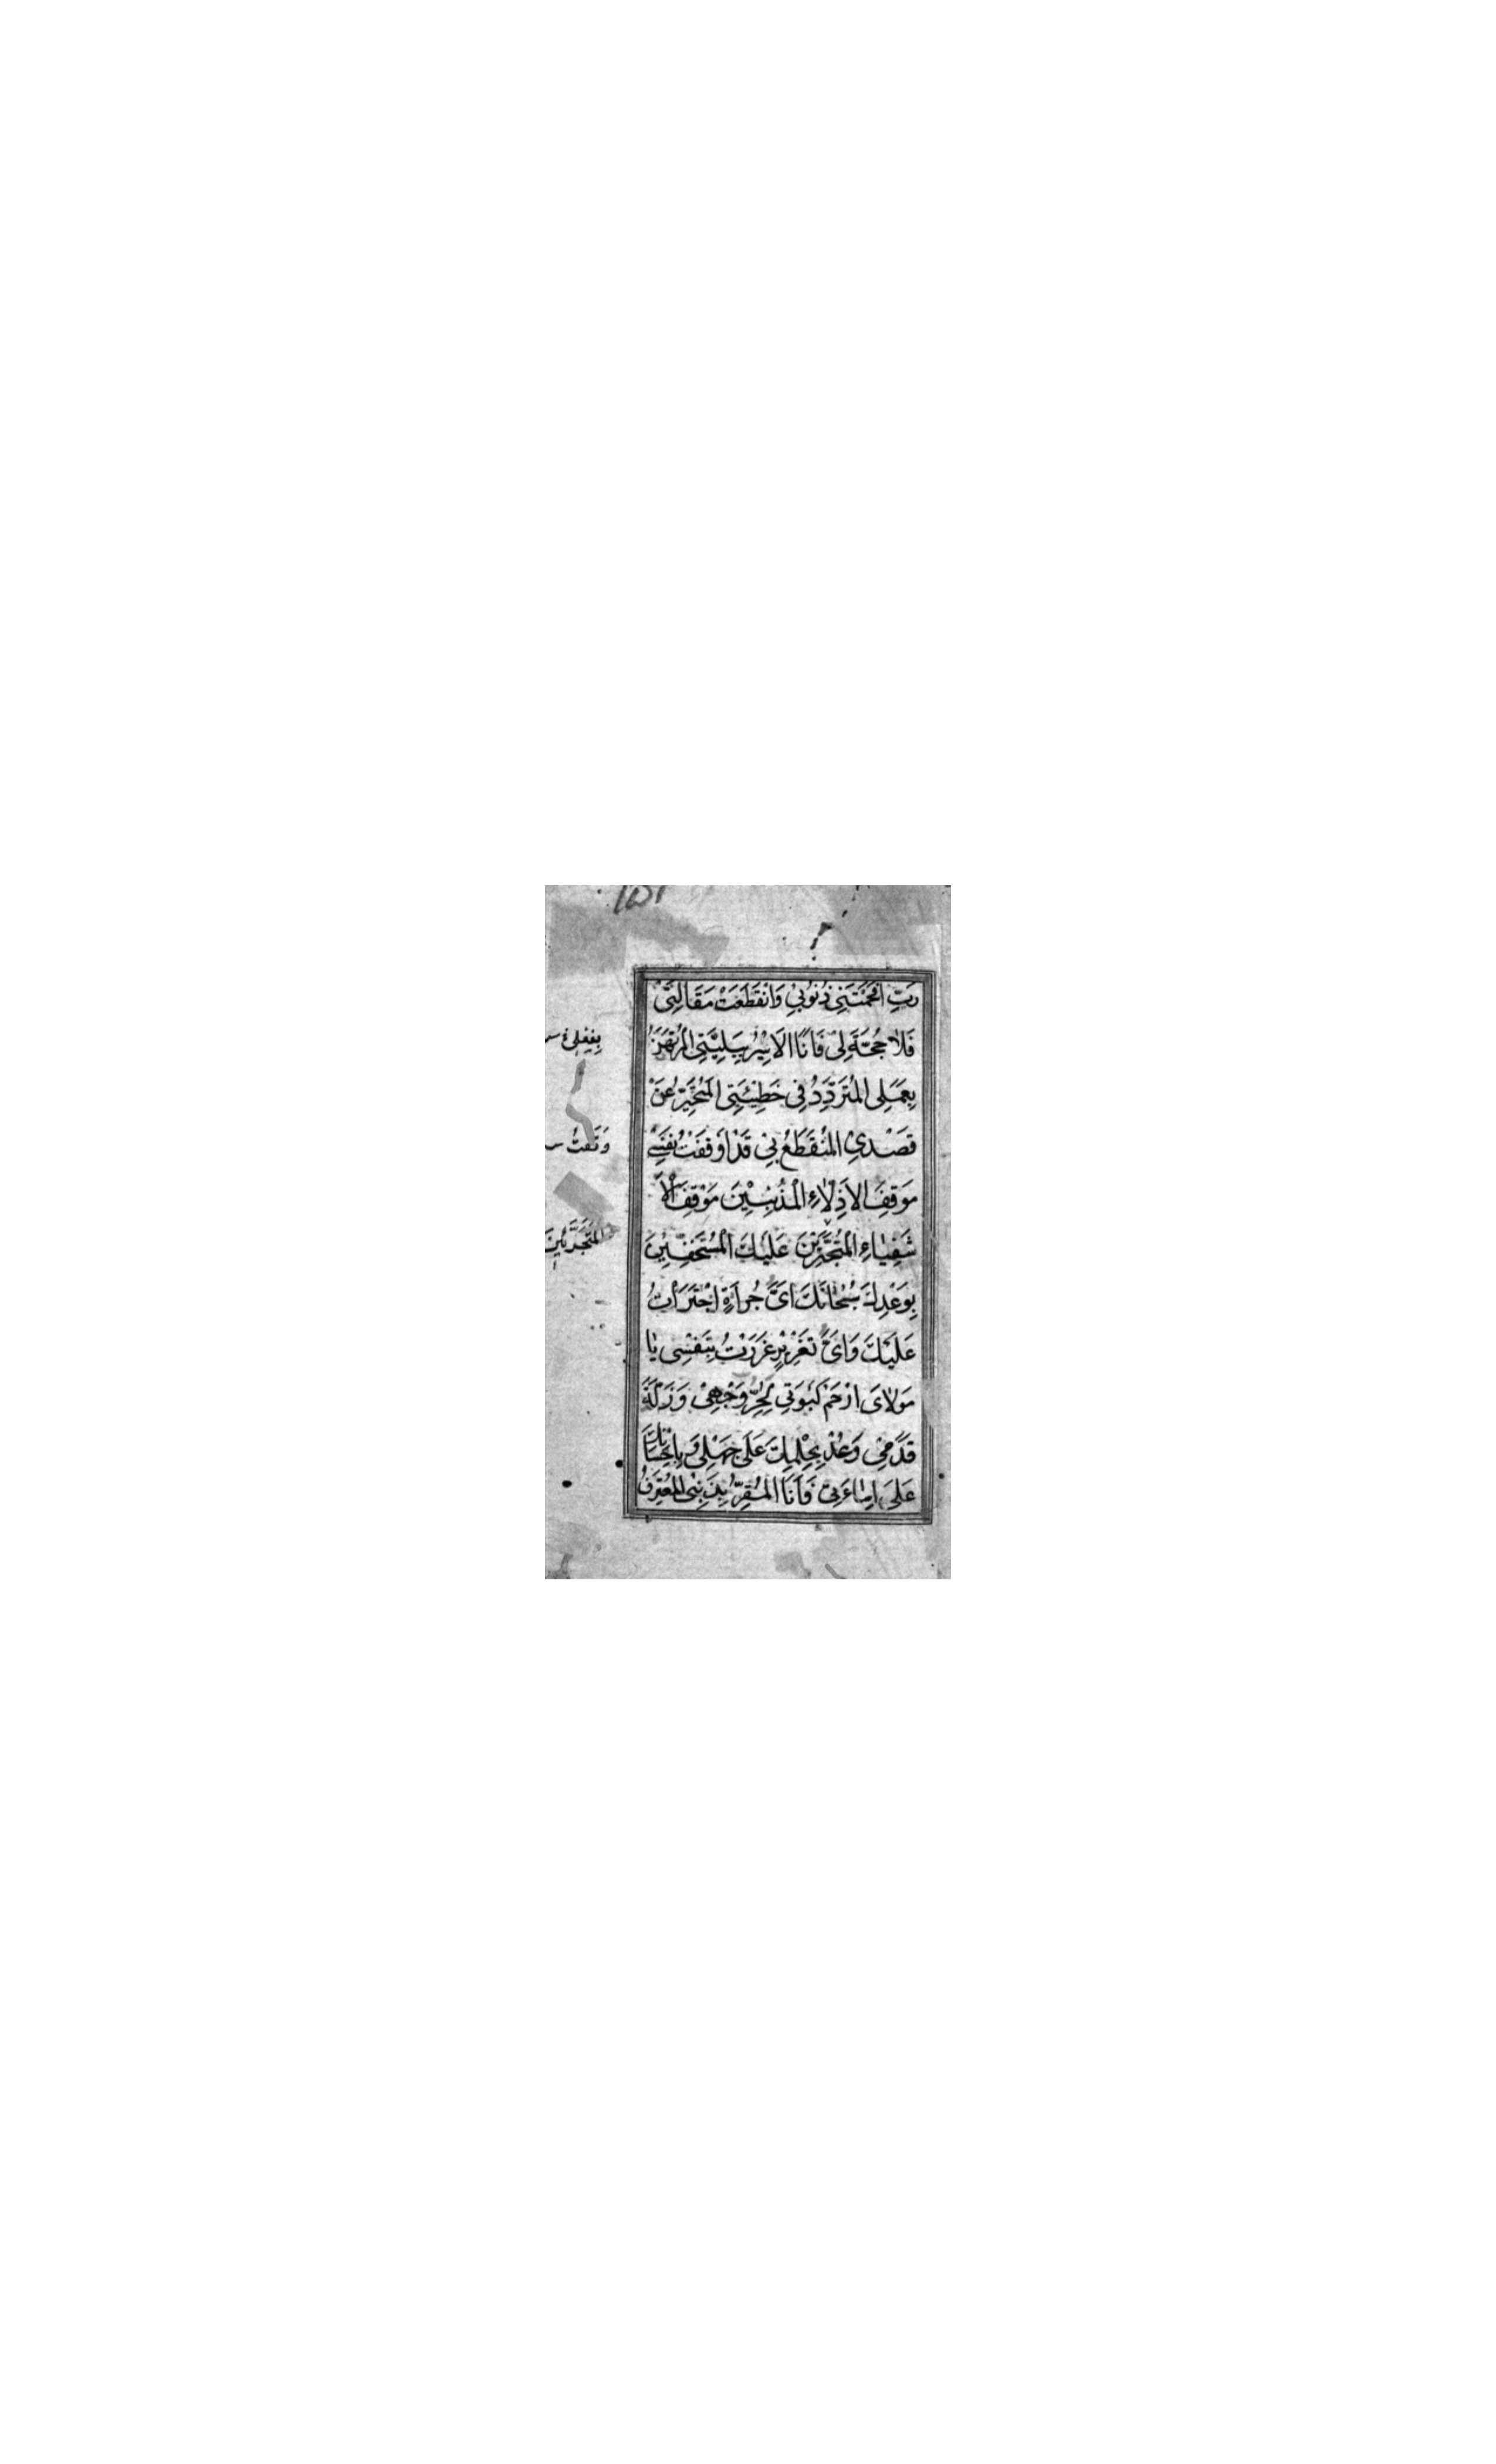 رَبِّ اَفْحَمَتْنِی ذُنُوبِی وَانْقَطَعَتْ مَقَالَتِیْ
فَلَا حُجَّةَ لِیْ فَاَنَا الْاَسِیْرُ بِبَلِیَّتِی الْمُرْتَهَنُ
بِعَمَلِی الْمُتَرَدِّدُ فِی خَطِیْئَتِی الْمُتَحَیِّرُ عَنْ
قَصْدِیْ الْمُنْقَطَعُ بِیْ قَدْ اَوْقَفْتُ نَفْسِیْ
مَوْقِفَ الْاَذِلَّاءِ الْمُذْنِبِیْنَ مَوْقِفَ الْاَ
شْقِیَاءِ الْمُتَجَرِّیْنَ عَلَیْكَ الْمُسْتَخِفِّیْنَ
بِوَعْدِكَ سُبْحَانَكَ اَیَّ جُرْاَةٍ اجْتَرَاْتُ
عَلَیْكَ وَاَیَّ تَغْرِیْرٍ غَرَّرْتُ بِنَفْسِی یَا
مَوْلَایَ ارْحَمْ كَبْوَتِی لِحُرِّ وَجْهِیْ وَزَلَّةَ
قَدَمِیْ وَعُدْ بِحِلْمِكَ عَلَى جَهْلِی وَبِاِحْسَانِكَ
عَلَی اِسَاءَتِیْ فَاَنَا الْمُقِرُّ بِذَنْبِی الْمُعْتَرِفُ
بِفِعْلِیْ
وَقَفْتُ
الْمُتَجَرِّئِیْنَ